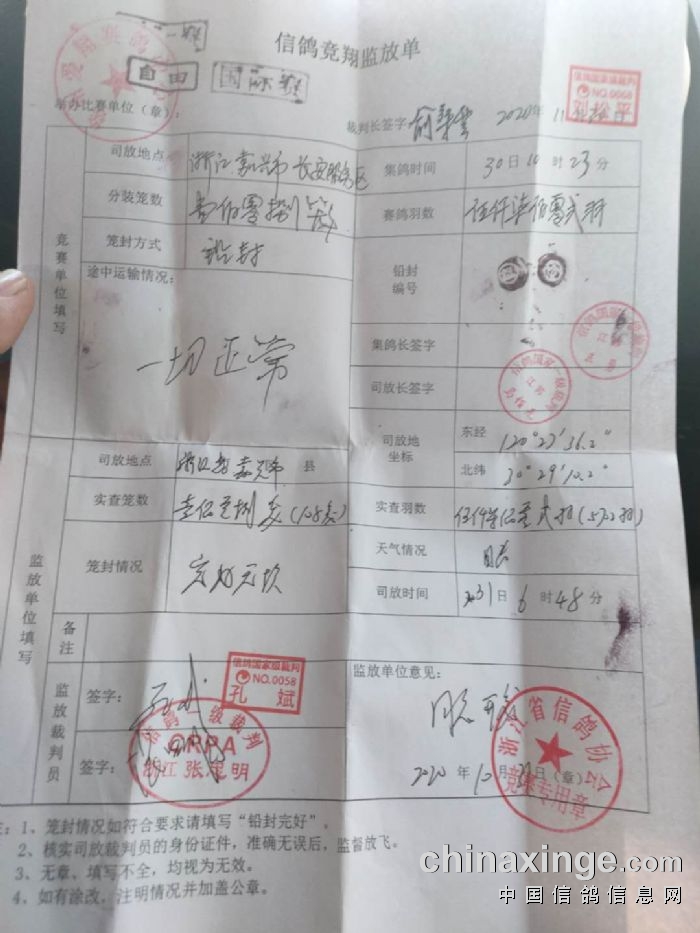 信鸽竞翔监放单
自由
国际赛
举办比赛单位（章）：
裁判长签字
2020年11月
信鸽国家级裁判
NO.0068
竞赛单位填写
司放地点
浙江嘉兴市长安服务区
集鸽时间
30日10时23分
分装笼数
壹佰零捌
赛鸽羽数
伍仟柒佰零贰羽
笼封方式
铅封
铅封编号
途中运输情况：
一切正常
集鸽长签字
司放长签字
江苏
监放单位填写
司放地点
浙江省嘉兴市 县
司放地坐标
东经
120°27′36.2″
北纬
30°29′10.2″
实查笼数
壹佰零捌 (108笼)
实查羽数
伍仟柒佰零贰羽(5702羽)
笼封情况
完好无缺
天气情况
晴
司放时间
31日6时48分
备注
监放裁判员
签字：
信鸽国家级裁判
NO.0058
孔 斌
签字：
信鸽一级裁判
CRPA
浙江 张定明
监放单位意见：
2020年10月31日（章）
浙江省信鸽协会
竞赛专用章
注：1、笼封情况如符合要求请填写“铅封完好”。
2、核实司放裁判员的身份证件，准确无误后，监督放飞。
3、无章、填写不全，均视为无效。
4、如有涂改，注明情况并加盖公章。
chinaxinge.com
中国信鸽信息网